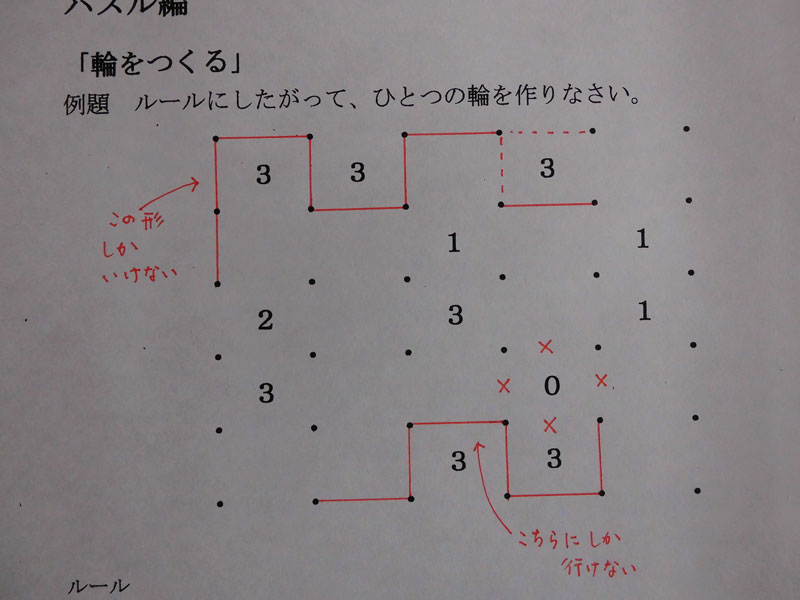 パズル編
「輪をつくる」
例題　ルールにしたがって、ひとつの輪を作りなさい。
3 3 3
この形
しか
いけない
1 1
2 3 1
3 × 0 ×
×
×
3 3
こちらにしか
行けない
ルール